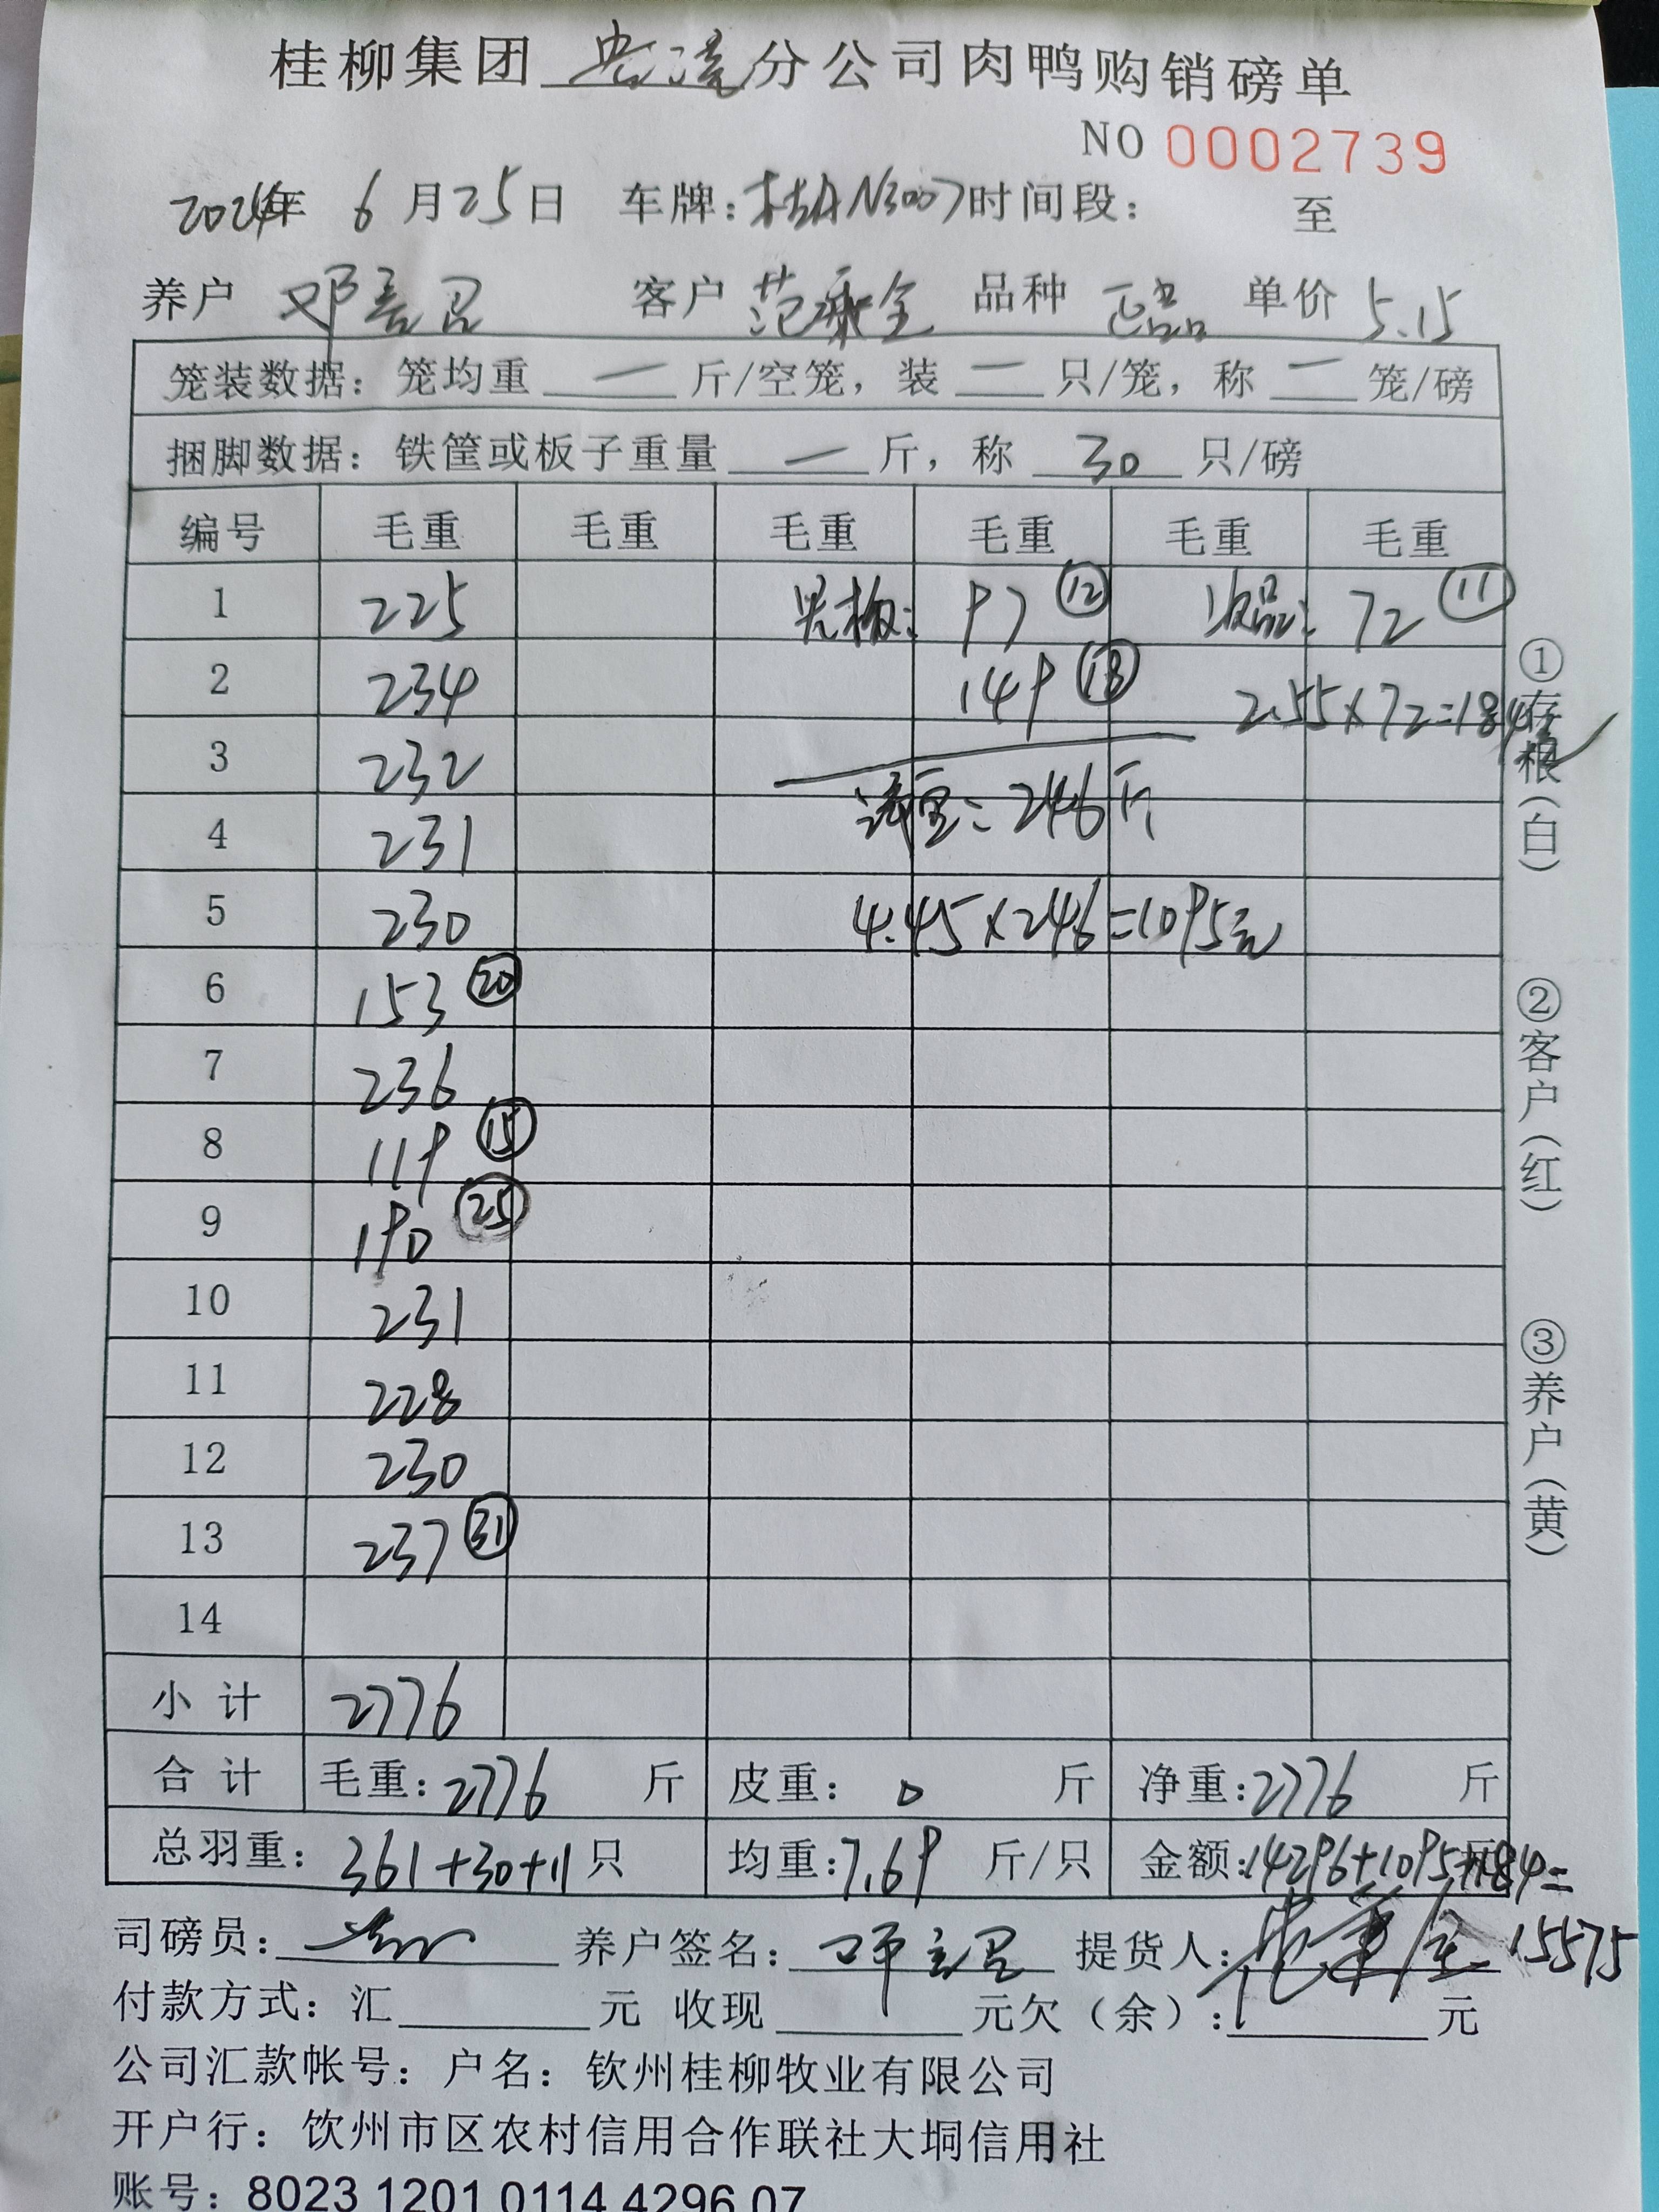 桂柳集团 分公司肉鸭购销磅单
NO 0002739
2024年 6月25日 车牌:桂AN3007 时间段: 至
养户 邓善昌 客户 范秉全 品种 正品 单价 5.15
笼装数据:笼均重 一 斤/空笼,装 一 只/笼,称 一 笼/磅
捆脚数据:铁筐或板子重量 一 斤,称 30 只/磅
编号 毛重 毛重 毛重 毛重 毛重 毛重
1 225 光板: 97 ⑫ 次品: 72 ⑪
2 234 149 ⑱ 2.55×72=184元
3 232
净重:246斤
4 231
5 230 4.45×246=1095元
6 153 ⑳
7 236
8 119 ⑮
9 190 ㉕
10 231
11 228
12 230
13 237 ㉛
14
小计 2776
合计 毛重:2776 斤 皮重: 0 斤 净重:2776 斤
总羽重:361+30+11 只 均重:7.69 斤/只 金额:14296+1095+184=
15575
司磅员: 养户签名: 提货人:
付款方式:汇 元 收现 元欠(余): 元
公司汇款帐号:户名:钦州桂柳牧业有限公司
开户行:饮州市区农村信用合作联社大垌信用社
账号:8023 1201 0114 4296 07
①存根(白)
②客户(红)
③养户(黄)